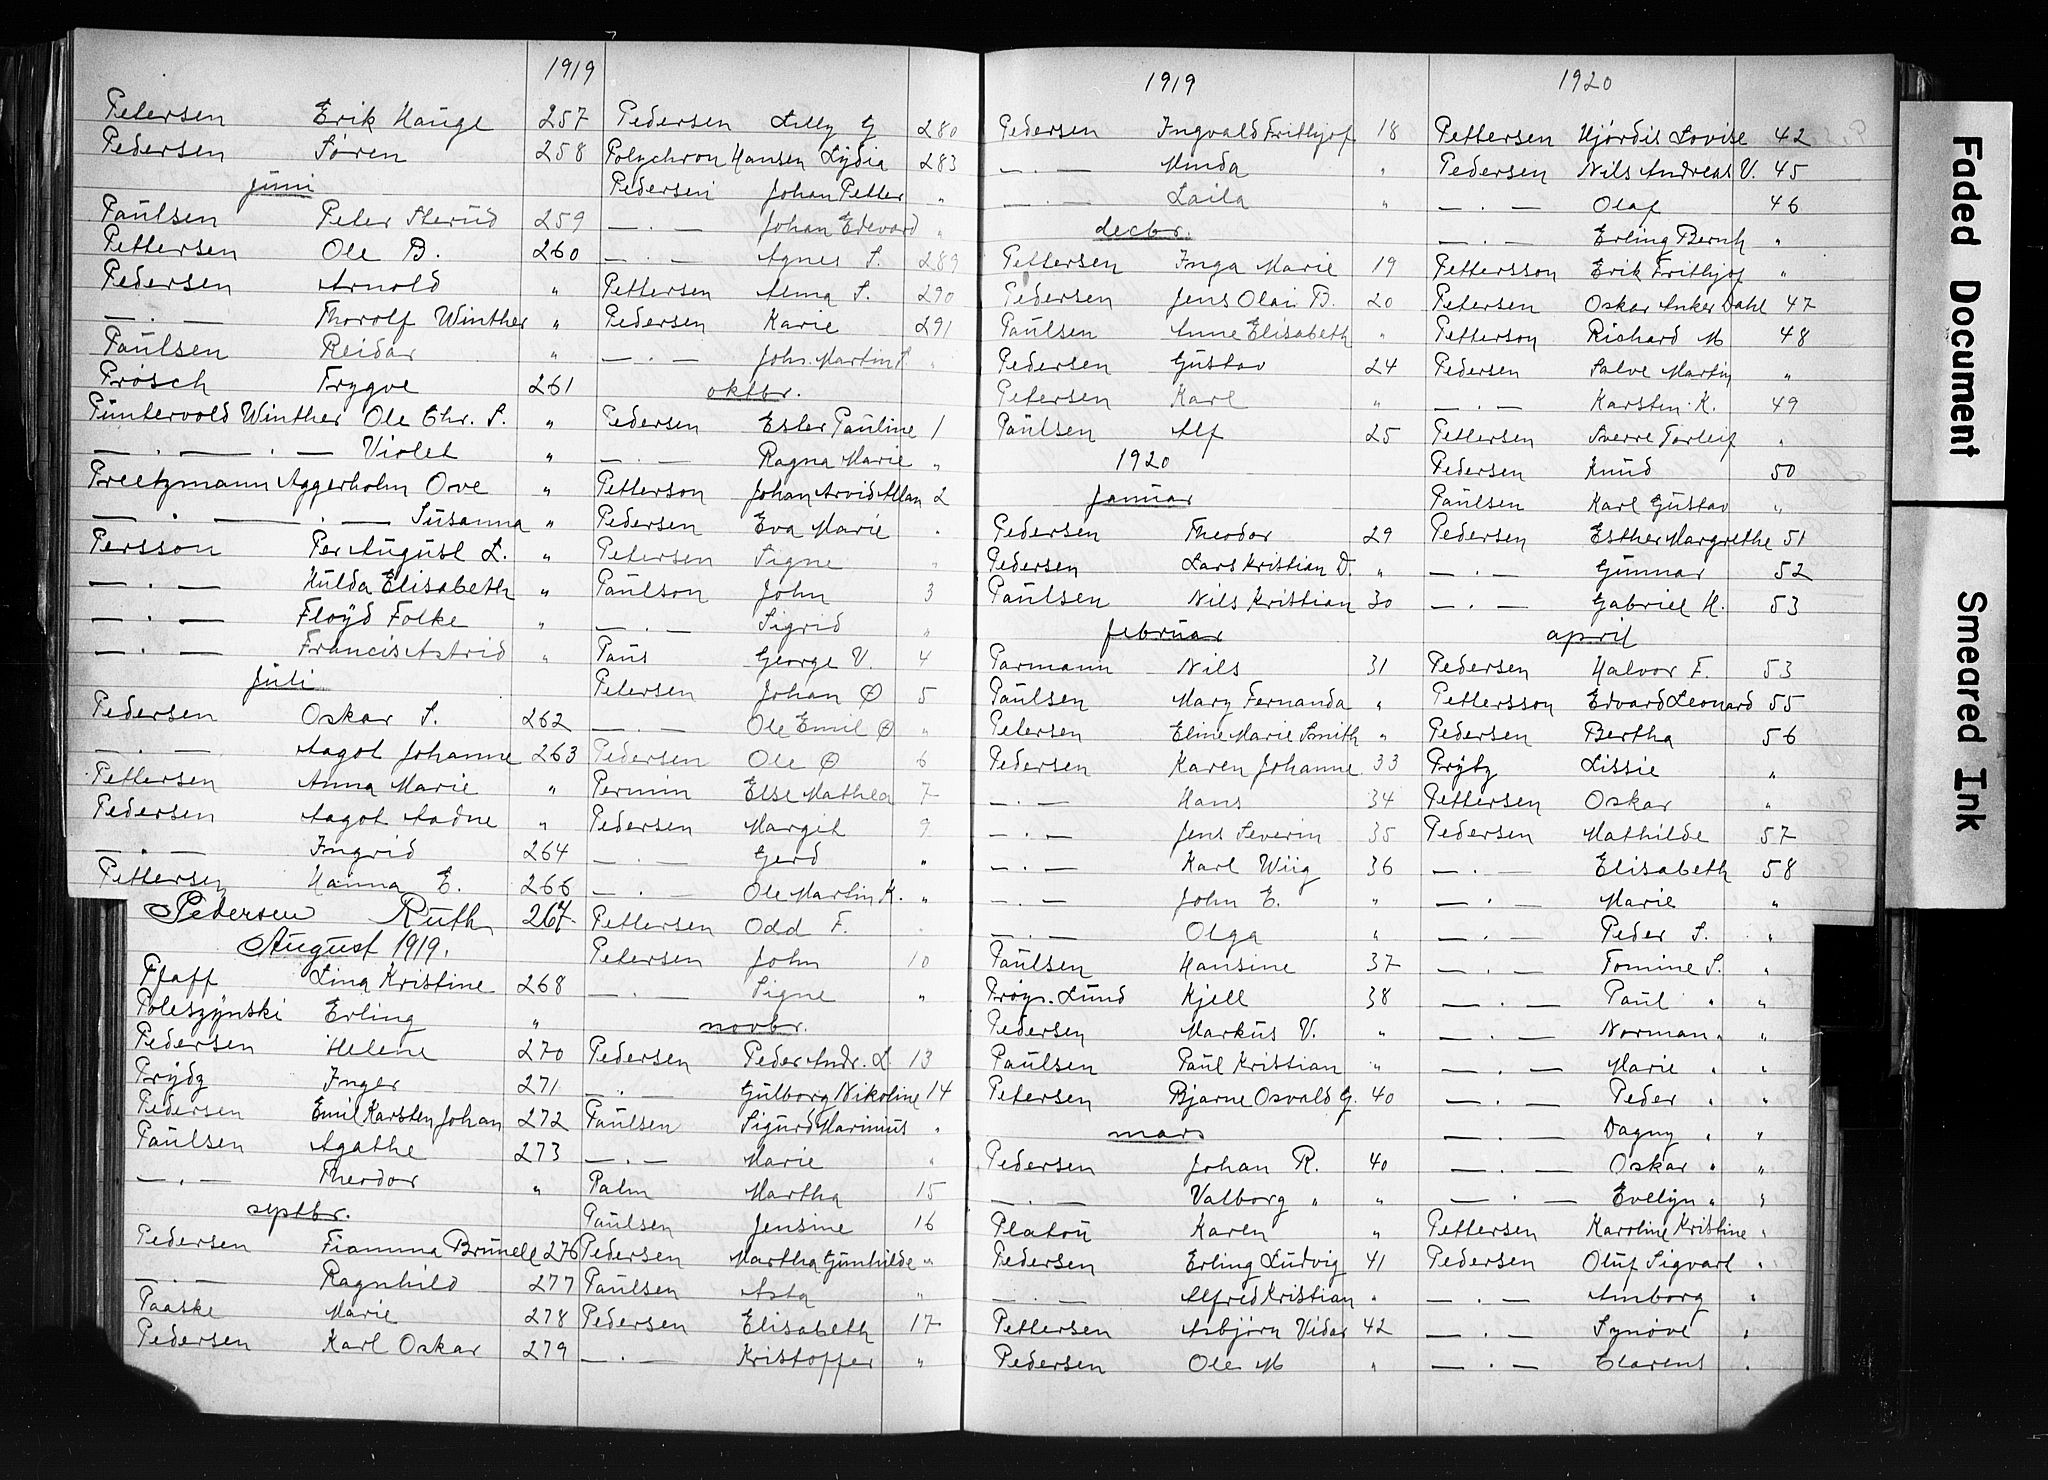 1919
Petersen Erik Hauge 257
Pedersen Søren 258
juni
Paulsen Peter Sterud 259
Pettersen Ole B. 260
Pedersen Arnold "
— . — Thorolf Winther "
Paulsen Reidar "
Prøsch Trygve 261
Puntervold Winther Ole Chr. S. "
— . — . — Violet "
Preetzmann Aggerholm Ove "
— . — . — Susanna "
Persson Per August L. "
— . — Hulda Elisabeth "
— . — Floyd Folke "
— . — Francis Astrid "
juli
Pedersen Oskar S. 262
— . — Aagot Johanne 263
Pettersen Anna Marie "
Pedersen Aagot Aadne "
— . — Ingrid 264
Pettersen Hanna E. 266
Pedersen Ruth 267
August 1919.
Pfaff Lina Kristine 268
Poleszynski Erling "
Pedersen Helene 270
Prydz Inger 271
Pedersen Emil Karsten Johan 272
Paulsen Agathe 273
— . — Theodor "
septbr.
Pedersen Fiamma Brunell 276
— . — Ragnhild 277
Paaske Marie 278
Pedersen Karl Oskar 279
Pedersen Lilly G 280
Polychron Hansen Lydia 283
Pedersen Johan Petter "
— . — Johan Edevard "
— . — Agnes S. 289
Pettersen Alma S. 290
Pedersen Karie 291
— . — Johs. Martin S. "
oktbr.
Pedersen Ester Pauline 1
— . — Ragna Marie "
Petterson Johan Arvid Allan 2
Pedersen Eva Marie "
Petersen Signe "
Paulson John 3
— . — Sigrid "
Paus George V. 4
Petersen Johan Ø 5
— . — Ole Emil Ø "
Pedersen Ole Ø 6
Permin Else Mathea 7
Pedersen Margit 9
— . — Gerd "
— . — Ole Martin K. "
Pettersen Odd F. "
Petersen John 10
— . — Signe "
novbr.
Pedersen Peder Andr. L 13
— . — Gulborg Nikoline 14
Paulsen Sigurd Marinius "
— . — Marie "
Palm Martha 15
Paulsen Jensine 16
Pedersen Martha Gunhilde "
Paulsen Asta "
Pedersen Elisabeth 17
— . — Kristoffer "
1919
Pedersen Ingvald Frithjof 18
— . — Minda "
— . — Laila "
decbr.
Pettersen Inga Marie 19
Pedersen Jens Olai B. 20
Paulsen Anne Elisabeth "
Pedersen Gustav 24
Petersen Karl "
Paulsen Alf 25
1920
januar
Pedersen Theodor 29
Pedersen Lars Kristian D. "
Paulsen Nils Kristian 30
februar
Parmann Nils 31
Paulsen Mary Fernanda "
Petersen Eline Marie Smith "
Pedersen Karen Johanne 33
— . — Hans 34
— . — Jens Severin 35
— . — Karl Wiig 36
— . — John E. "
— . — Olga "
Paulsen Hansine 37
Prøys. Lund Kjell 38
Pedersen Markus V. "
Paulsen Paul Kristian "
Petersen Bjarne Osvald G. 40
mars
Pedersen Johan R. 40
— . — Valborg " "
Platou Karen "
Pedersen Erling Ludvig 41
— . — Alfred Kristian "
Pettersen Asbjørn Vidar 42
Pedersen Ole M "
1920
Pettersen Hjørdis Lovise 42
Pedersen Nils Andreas V. 45
— . — Olaf 46
— . — Erling Bernh "
Pettersson Erik Frithjof "
Petersen Oskar Anker Dahl 47
Petterson Richard M 48
Pedersen Salve Martin "
— . — Karsten K. 49
Pettersen Sverre Torleif "
Pedersen Knud 50
Paulsen Karl Gustav "
Pedersen Esther Margrethe 51
— . — Gunnar 52
— . — Gabriel H. 53
april
Pedersen Halvor F. 53
Pettersson Edvard Leonard 55
Pedersen Bertha 56
Prytz Lissie "
Pettersen Oskar "
Pedersen Mathilde 57
— . — Elisabeth 58
— . — Marie "
— . — Peder S. "
— . — Tomine S. "
— . — Paul " "
— . — Norman " "
— . — Marie " "
— . — Peder " "
— . — Dagny " "
— . — Oskar " "
— . — Evelyn " "
Pettersen Karoline Kristine "
Pedersen Oluf Sigvart "
— . — Amborg "
— . — Synøve "
— . — Clarens "
Faded Document
Smeared Ink